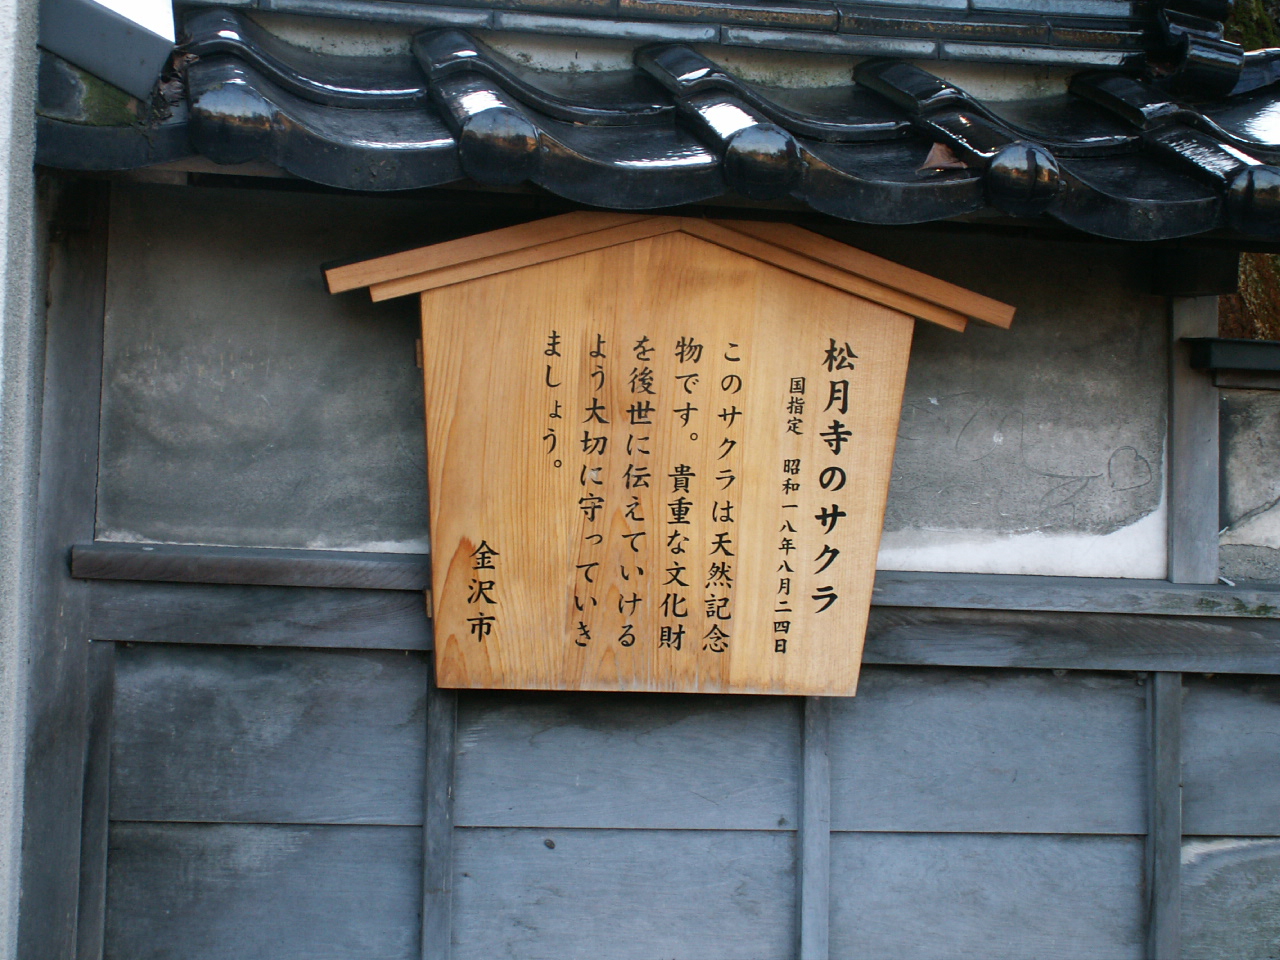 松月寺のサクラ
国指定 昭和一八年八月二四日
このサクラは天然記念
物です。貴重な文化財
を後世に伝えていける
よう大切に守っていき
ましょう。
金沢市